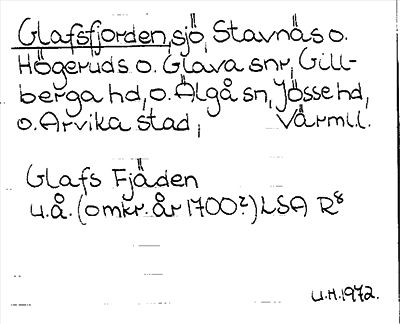 Glafsfjorden, sjö, Stavnäs o.
Högeruds o. Glava snr, Gill-
berga hd, o. Älgå sn, Jösse hd,
o. Arvika stad, Värml.
Glafs Fjäden
u.å. (omkr. år 1700?) LSA R8
U.H. 1972.